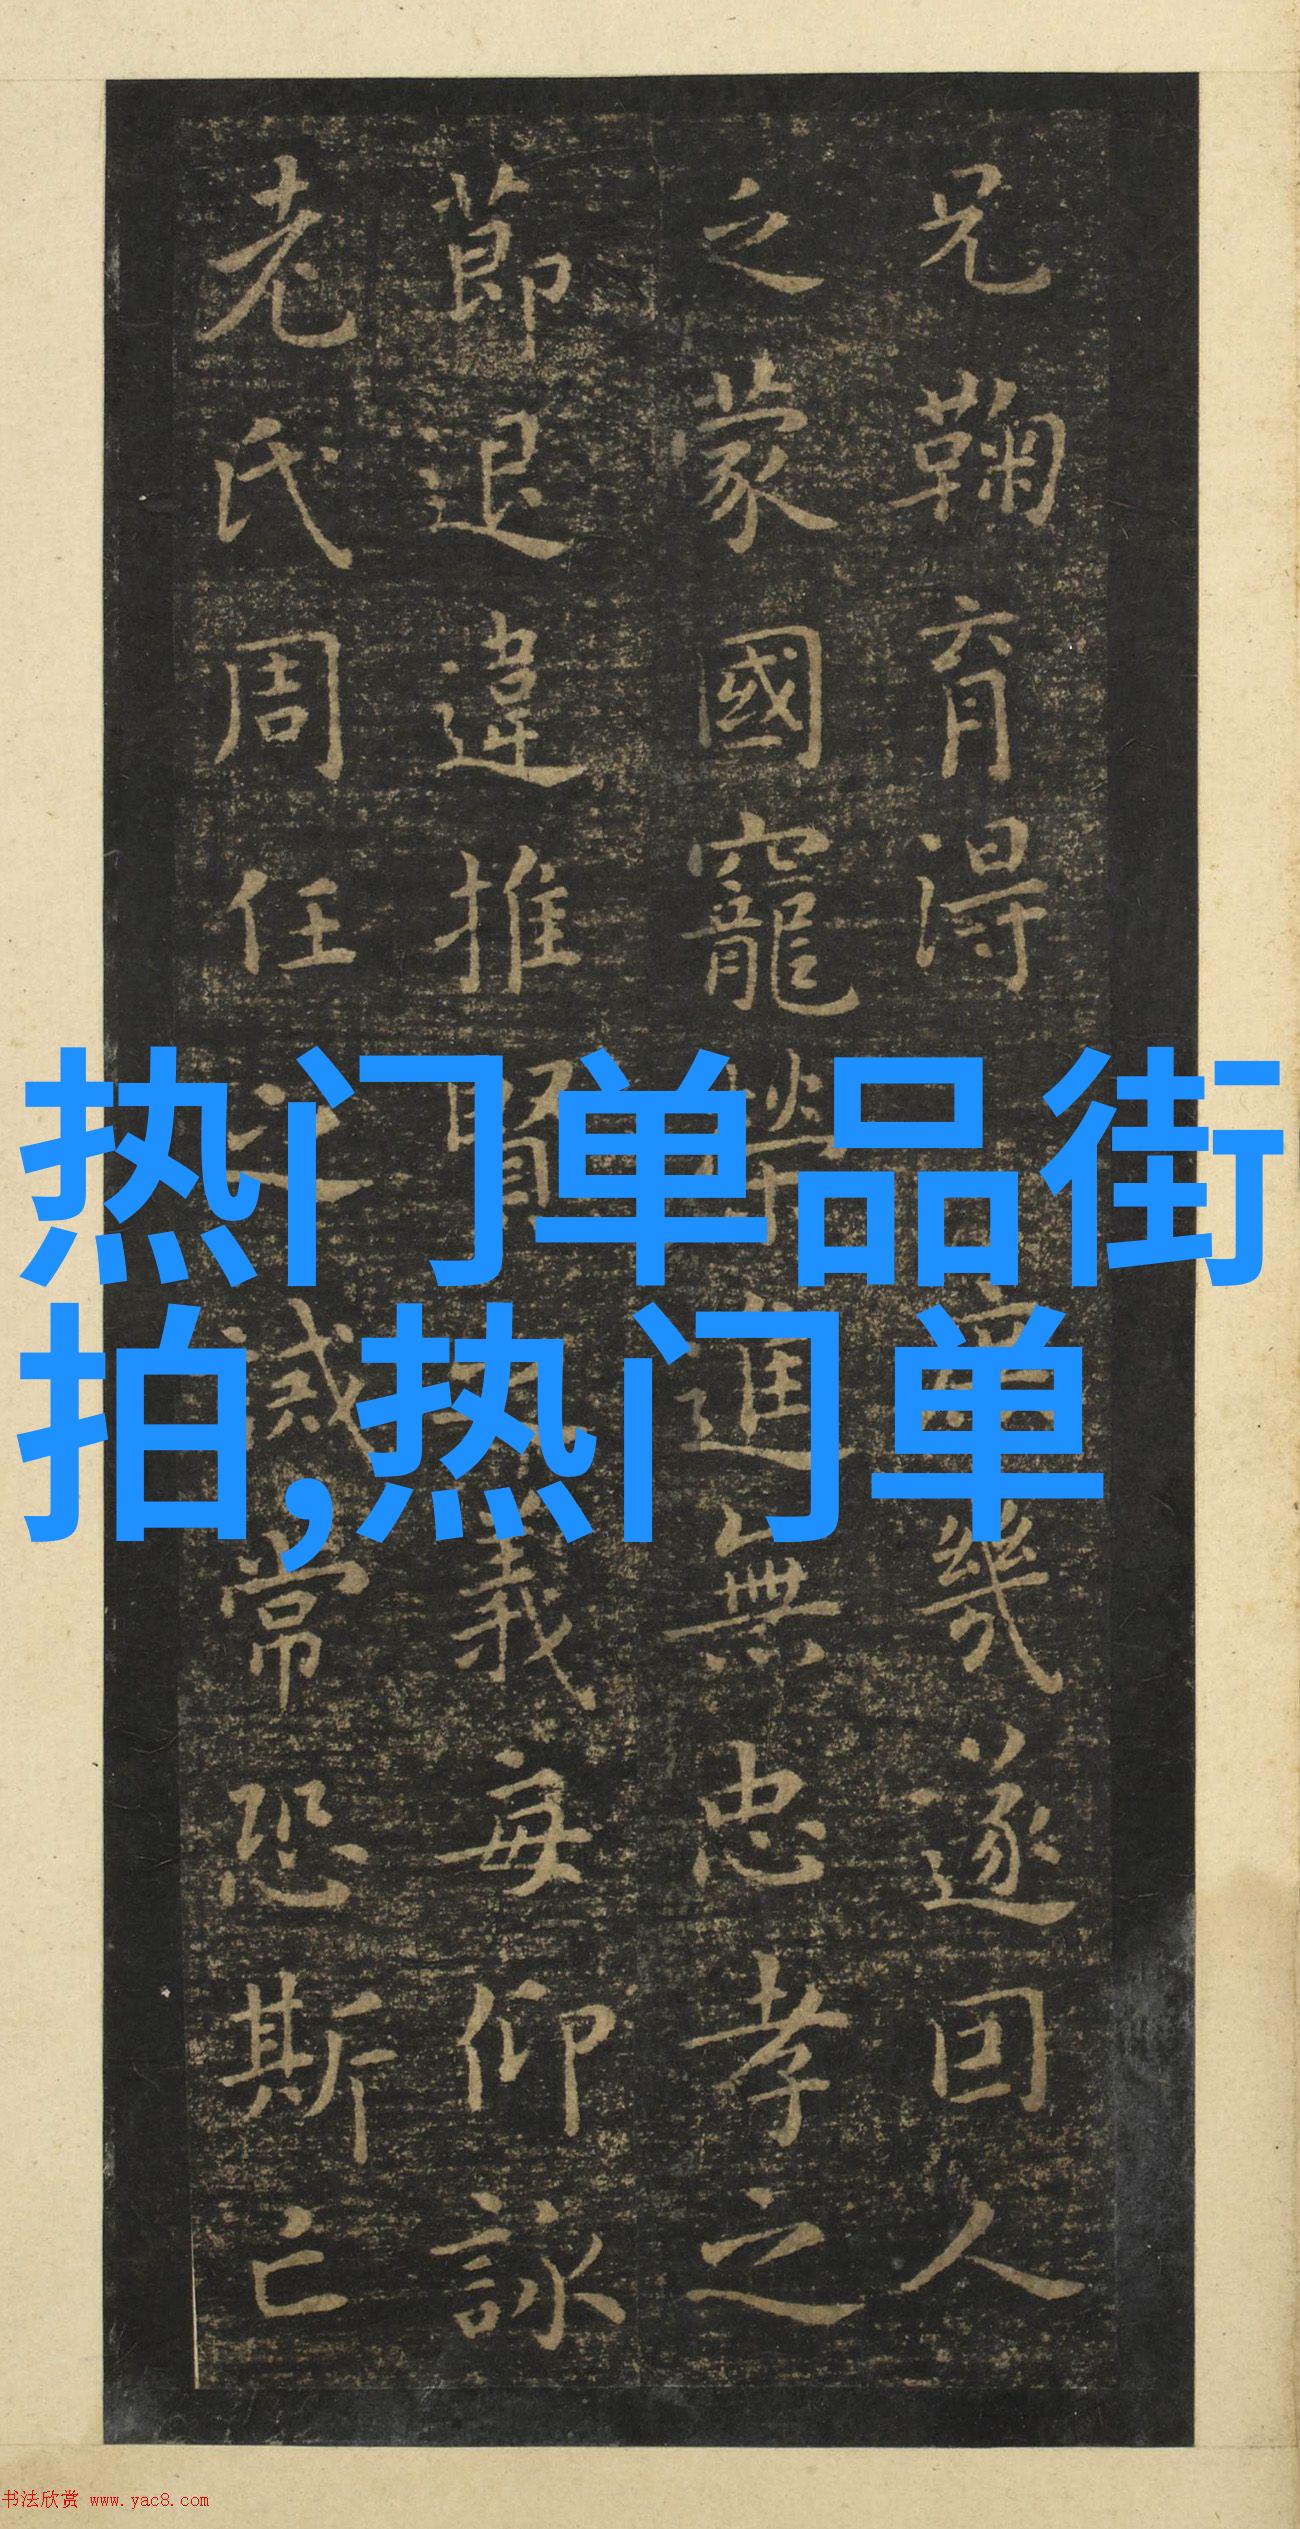 兄鞠育得幾遂因人
之蒙國寵榮進無忠孝之
節退違推賢之義每仰詠
老氏周任之誡常恐斯亡
热门单品街
拍,热门单
书法欣赏 www.yac8.com